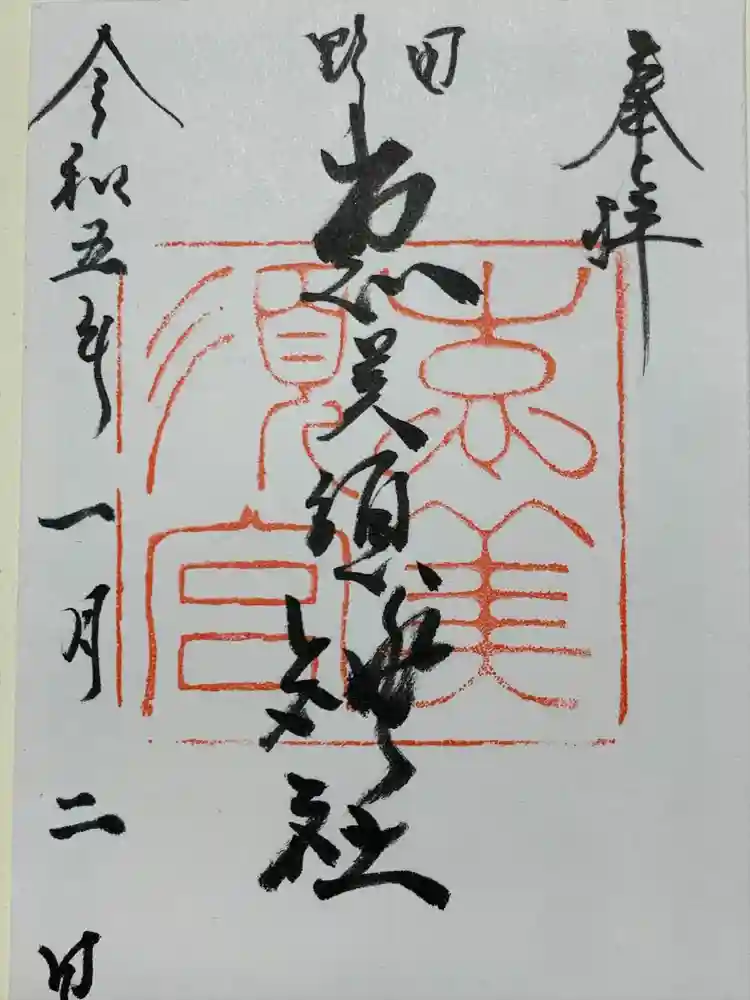 奉拝
野田
恵美須神社
恵美
須宮
令和五年一月二日